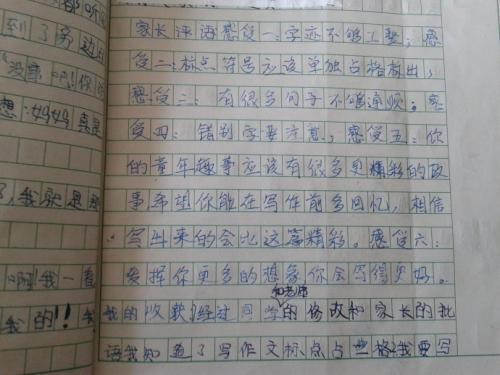 都
到了旁边
"没事吧!你
想:妈妈真是
了,我就是
啊!我一看
我的!!我
家长评语感受一:字迹不够工整;感
受二:标点符号应该单独占格标出;
感受三:有很多句子不够连顺。感
受四:错别字要注意;感受五:你
的童年趣事应该有很多更精彩的故
事希望你能在写作前多回忆,相信
写出来的会比这篇精彩。感受六:
发挥你更多的想象你会写得更好。
和老师
我的收获:经过同学的修改和家长的批
语我知道了写作文标点占一格我要写